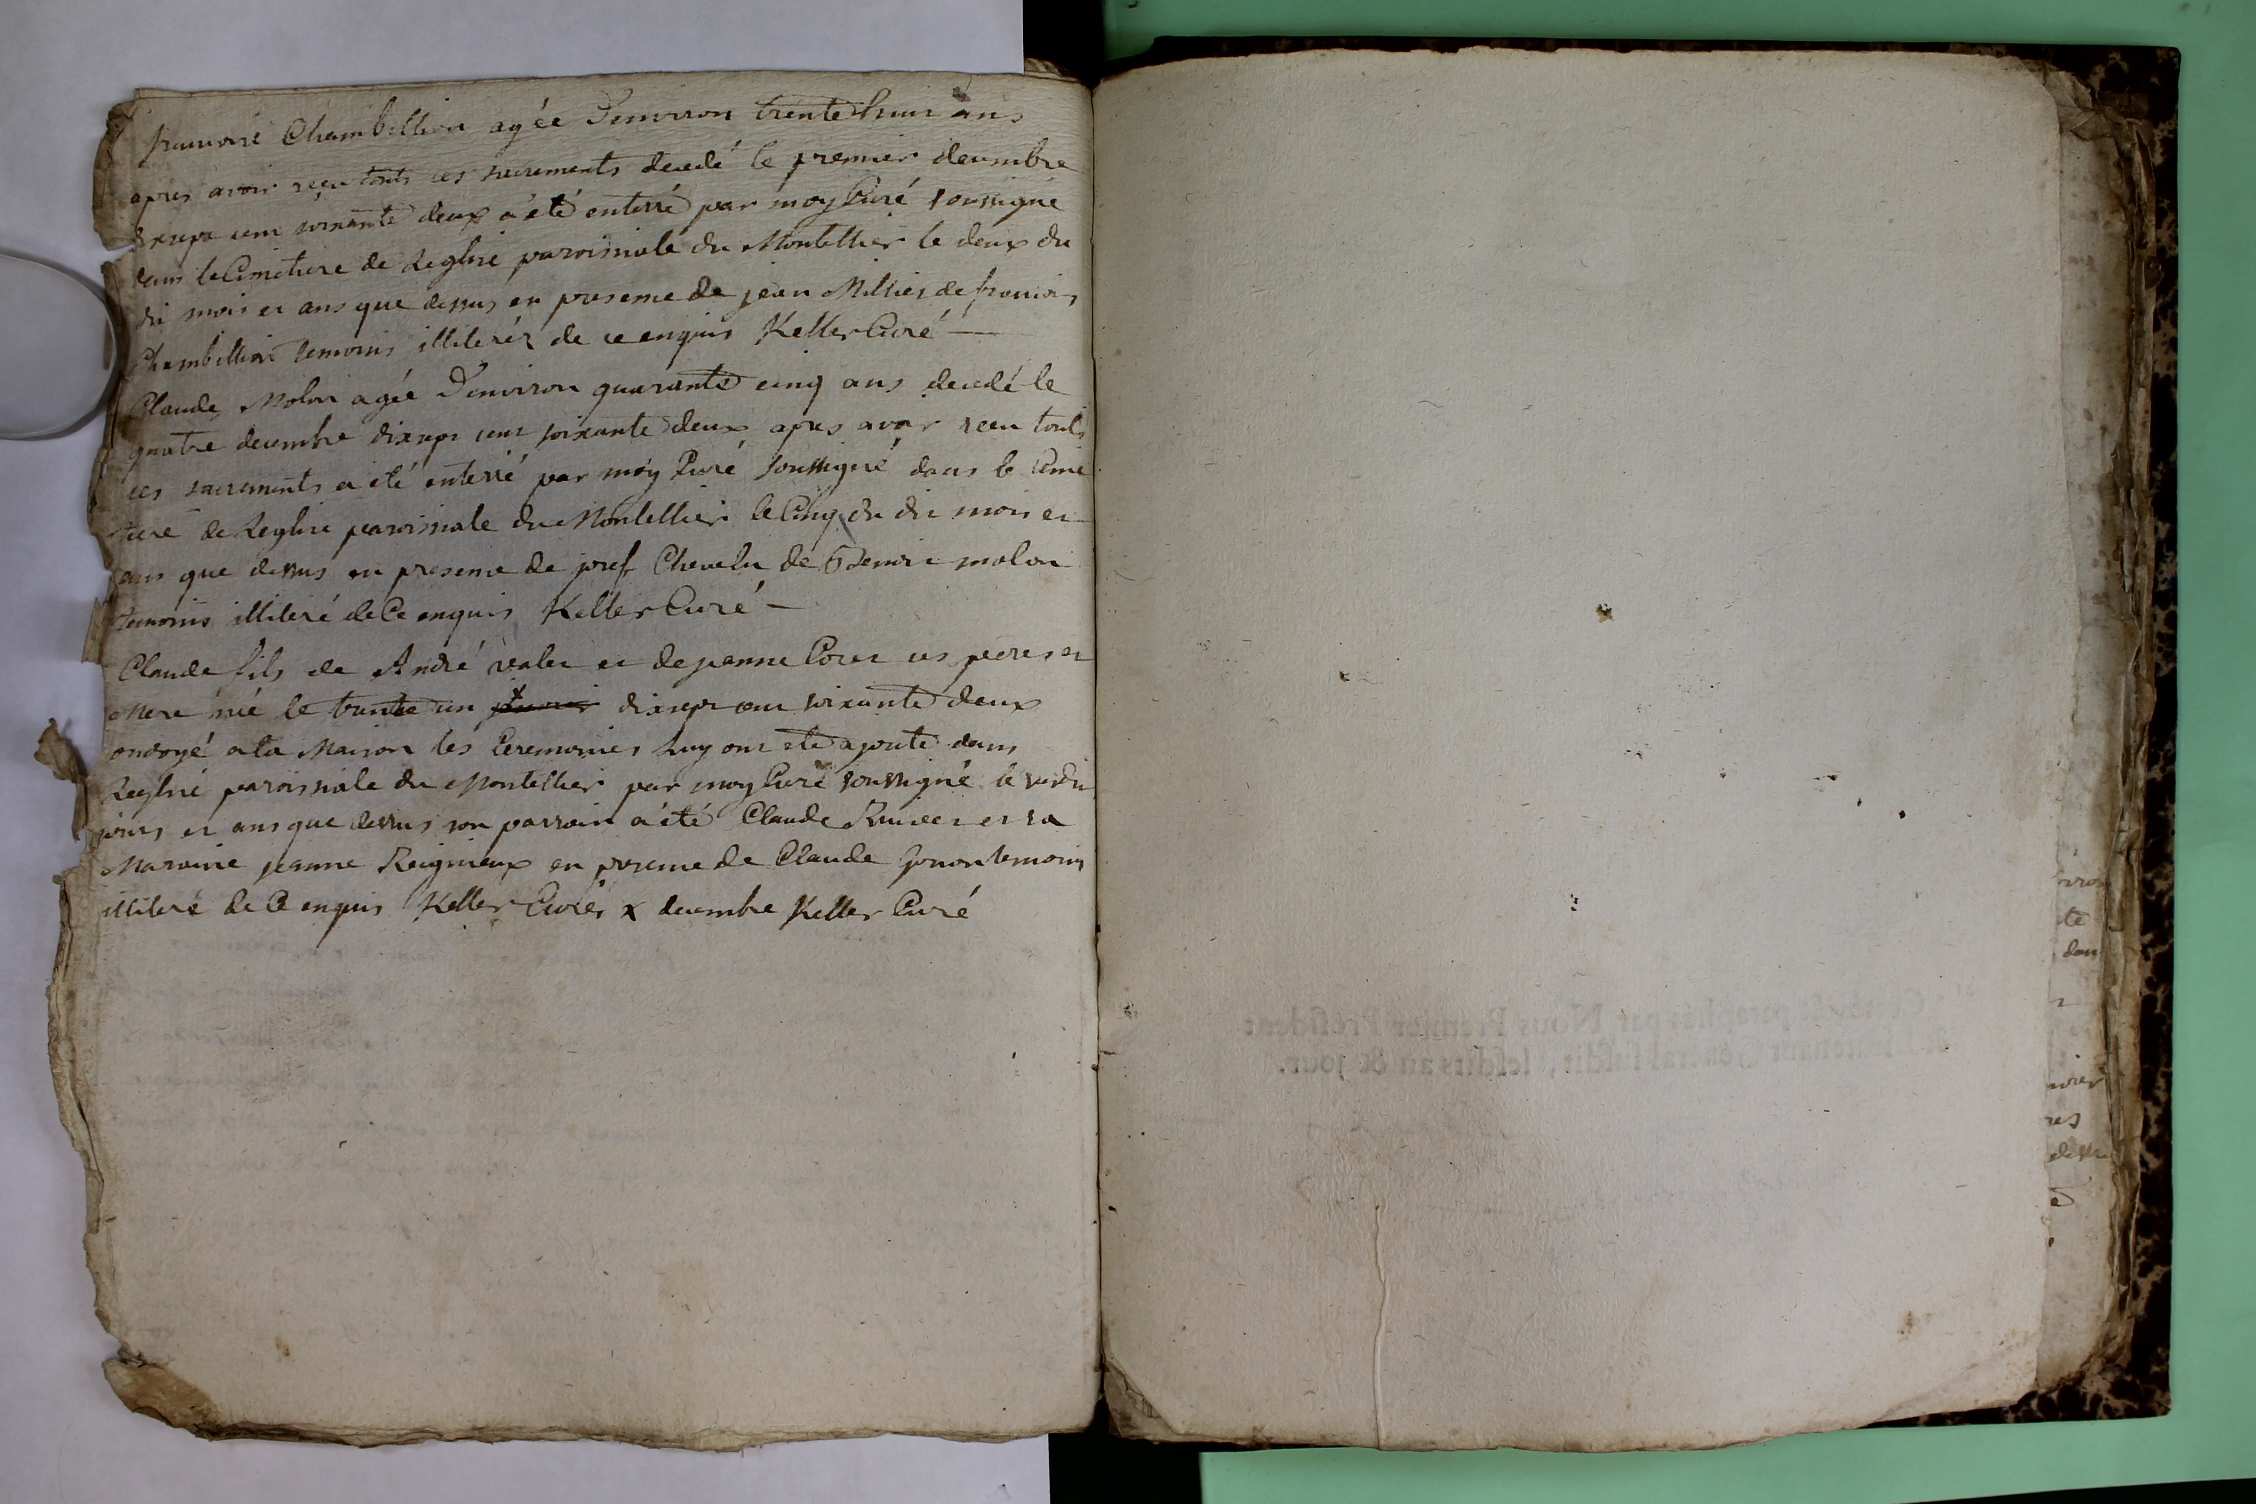 francoise Chambellion agée Denviron trente huit ans
apres avoir reçu touts ces sacrements decedé le premier decembre
dixsept cent soixante deux a été enterré par moy Curé soussigné
dans le Cimetiere de Leglise paroissiale du Montellier le deux du
dit mois et ans que dessus en presence de jean Millier de francois
Chambellion temoins illiteréz de ce enquis Keller Curé
Claude Molon agée Denviron quarante cinq ans decedé le
quatre decembre dixsept cent soixante deux apres avoir recu touts
ces sacrements a été enterré par moy Curé soussigné dans le cime
tiere de Leglise paroissiale du Montellier le Cinq du dit mois et
ans que dessus en presence de josef Chevelu de molon
temoins illiteré de Ce enquis Keller Curé
Claude fils de André valet et de jeanne ces peres et
Mere née le trente un dixsept cent soixante deux
ondoyé a la Maison les Ceremonies luy ont ete ajouté dans
Leglise paroissiale du Montellier par moy Curé soussigné le
jours et ans que dessus son parrain a été Claude et sa
Maraine jeanne Reignieux en presence de Claude Gonon temoin
illiteré de Ce enquis Keller Curés x decembre Keller Curé
par Nous Premier Président
Lieutenant Général susdit, lesdits an & jour.
te
dan
res